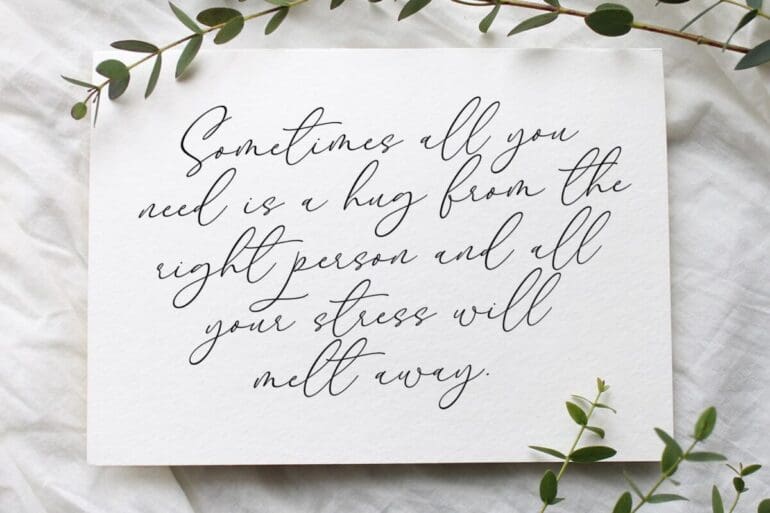 Sometimes all you
need is a hug from the
right person and all
your stress will
melt away.